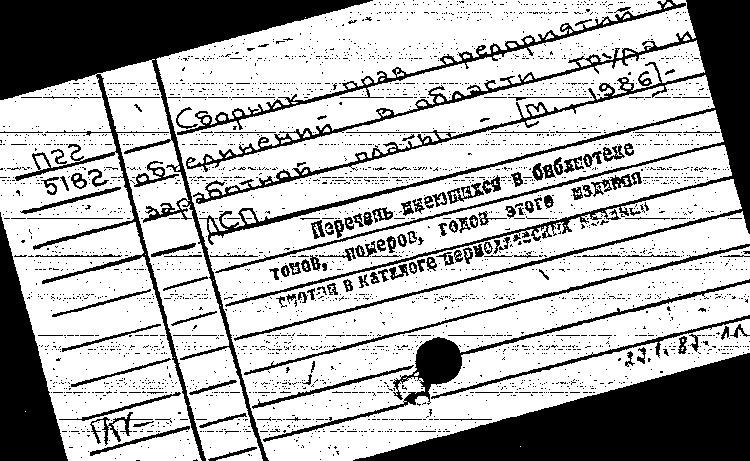 Сборник прав предприятий и
П22
5182
объединений в области труда и
заработной платы. - [М., 1986]-
ДСП.
Перечень имеющихся в библиотеке
томов, номеров, годов этого издания
смотри в каталоге периодических изданий
ГКУ-